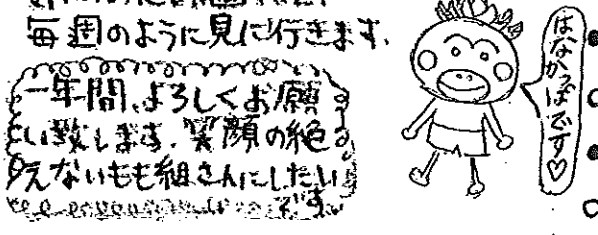 毎週のように見に行きます。
一年間、よろしくお願
い致します。笑顔の絶
えないもも組さんにしたい
です。
はなかっぱです♡